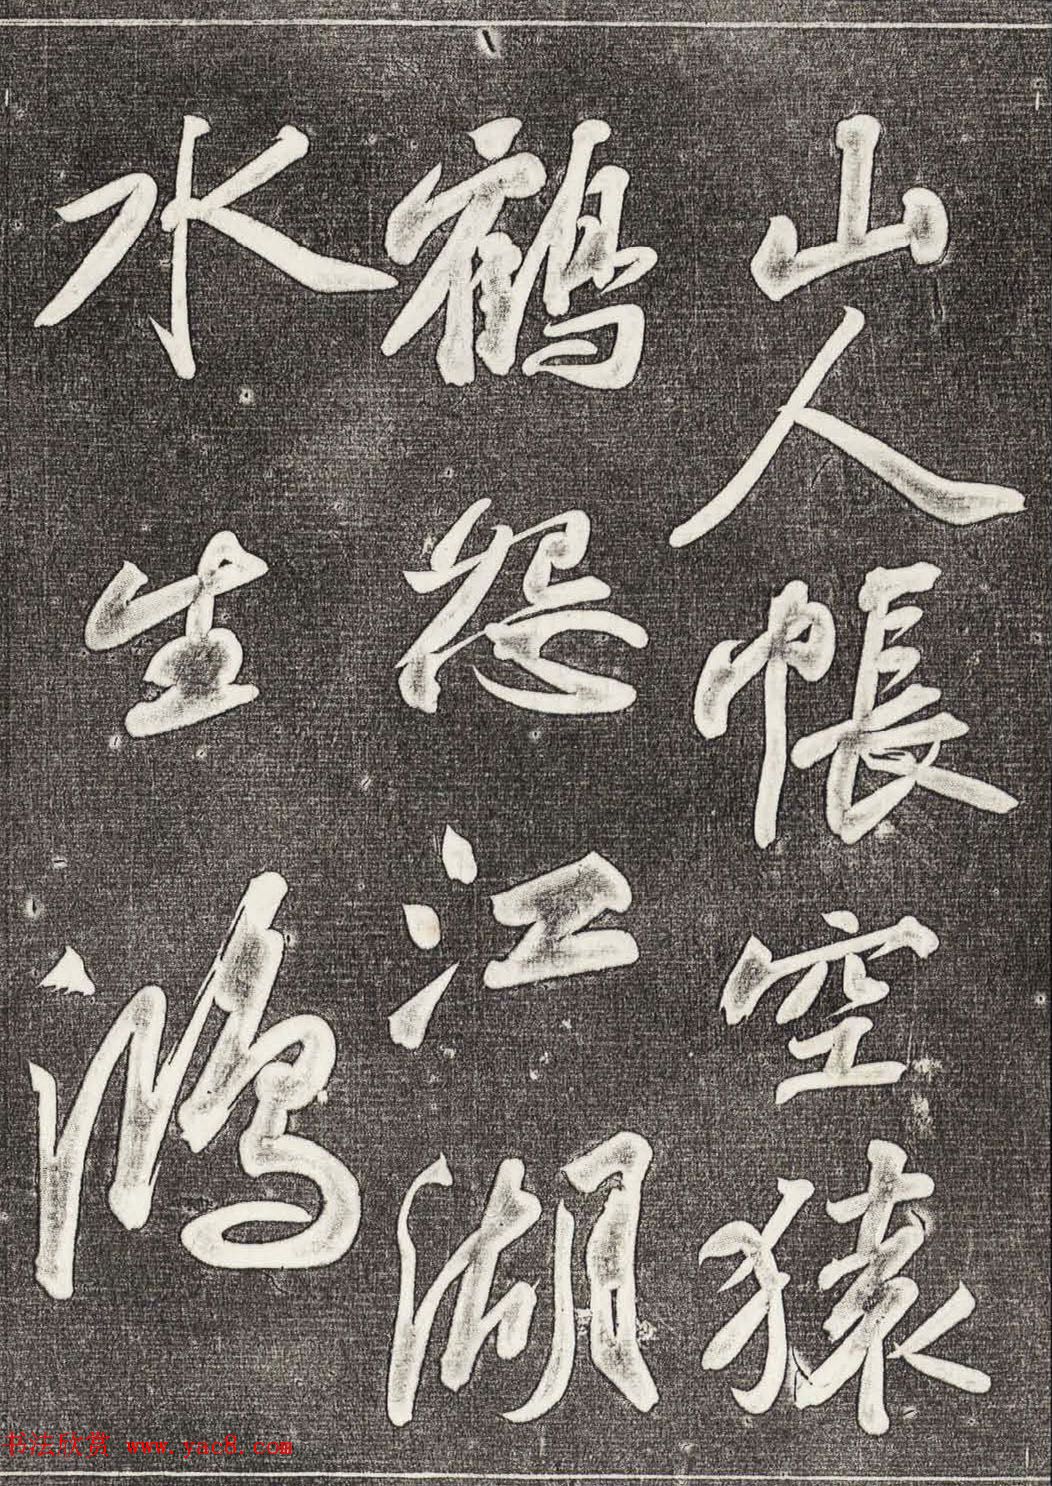 山人帳空猿
鶴怨江湖
水生鴻
书法欣赏 www.yac8.com